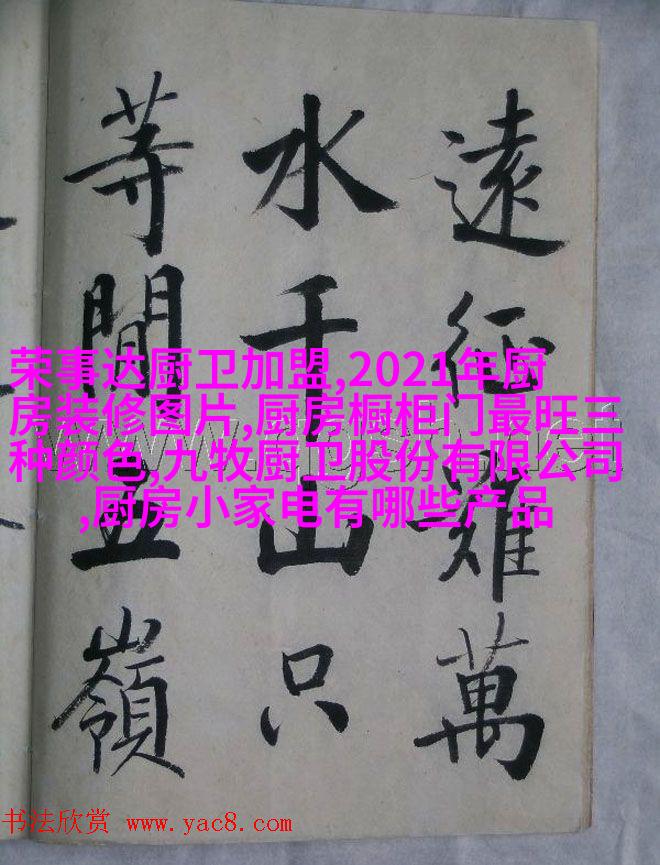 遠征難萬
水千山只
等間五嶺
荣事达厨卫加盟,2021年厨
房装修图片,厨房橱柜门最旺三
种颜色,九牧厨卫股份有限公司
,厨房小家电有哪些产品
书法欣赏 www.yac8.com